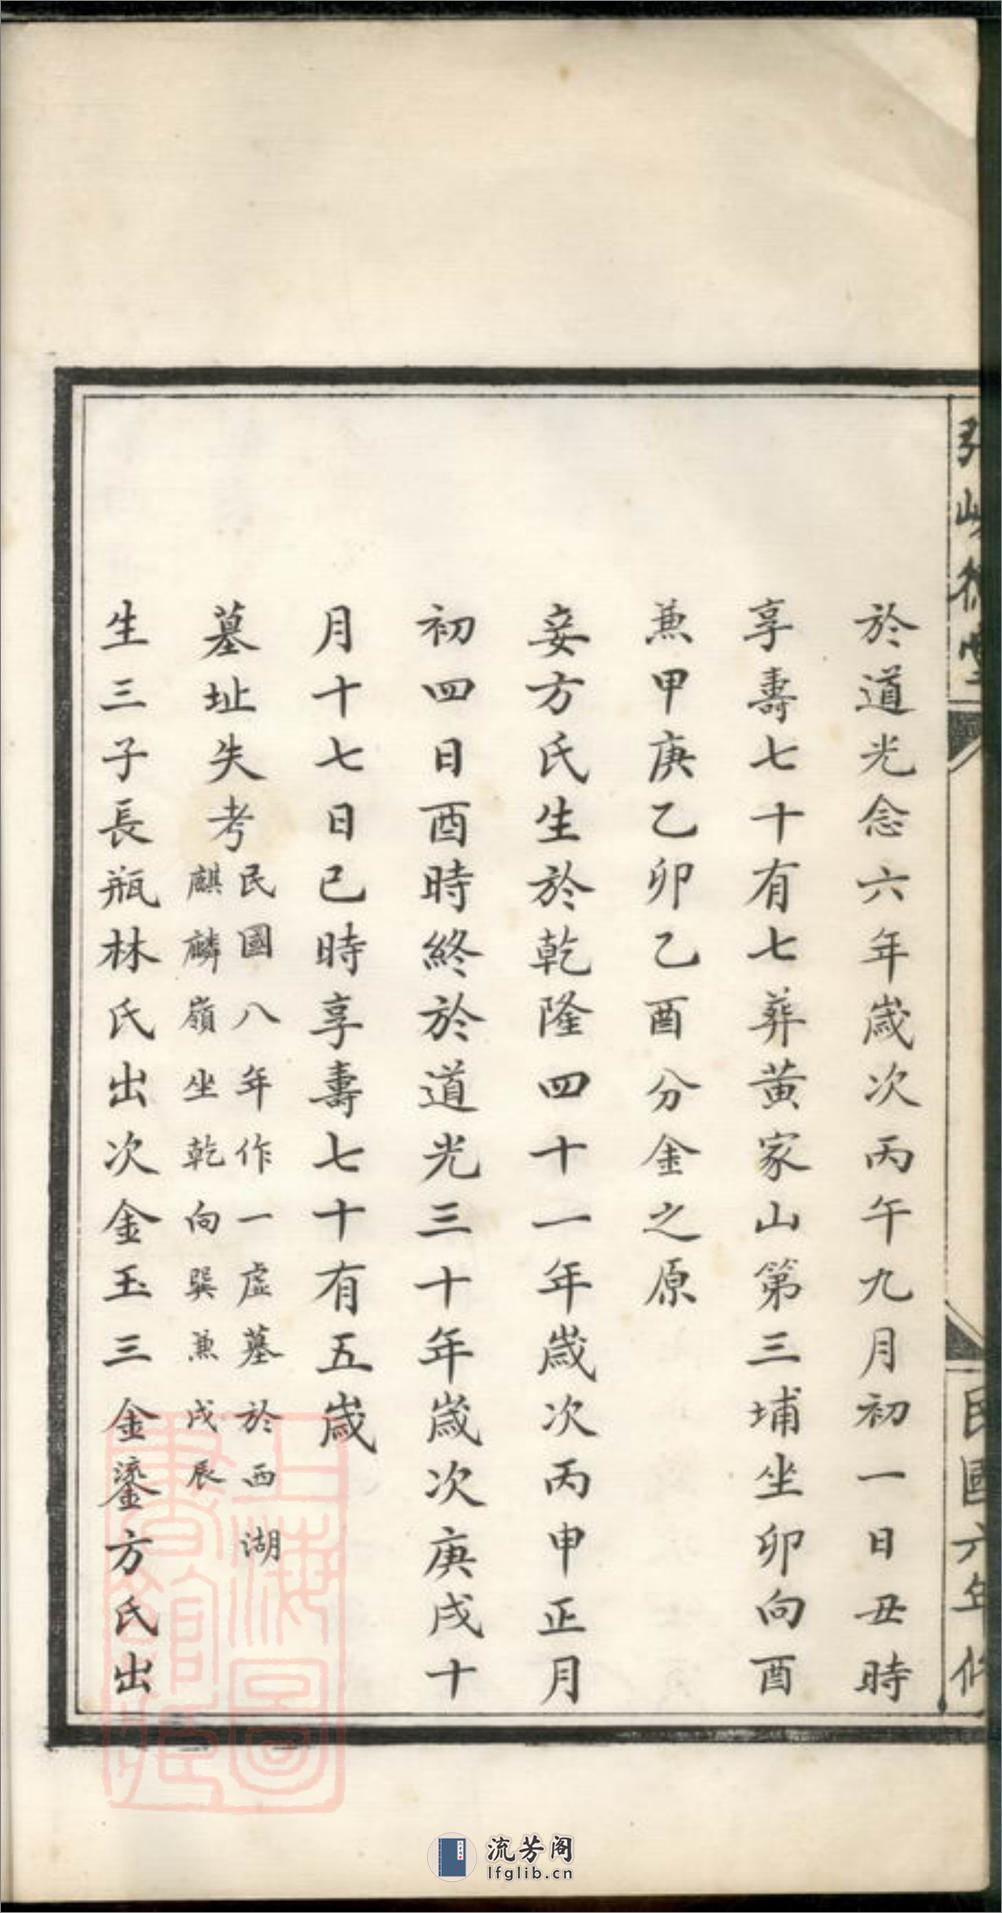 於道光念六年歲次丙午九月初一日丑時
享壽七十有七葬黃家山第三埔坐卯向酉
兼甲庚乙卯乙酉分金之原
妾方氏生於乾隆四十一年歲次丙申正月
初四日酉時終於道光三十年歲次庚戌十
月十七日巳時享壽七十有五歲
墓址失考
民國八年作一虛墓於西湖
麒麟嶺坐乾向巽兼戌辰
生三子長瓶林氏出次金玉三金鎏方氏出
民國六年修
上海圖書館藏
流芳阁
lfglib.cn